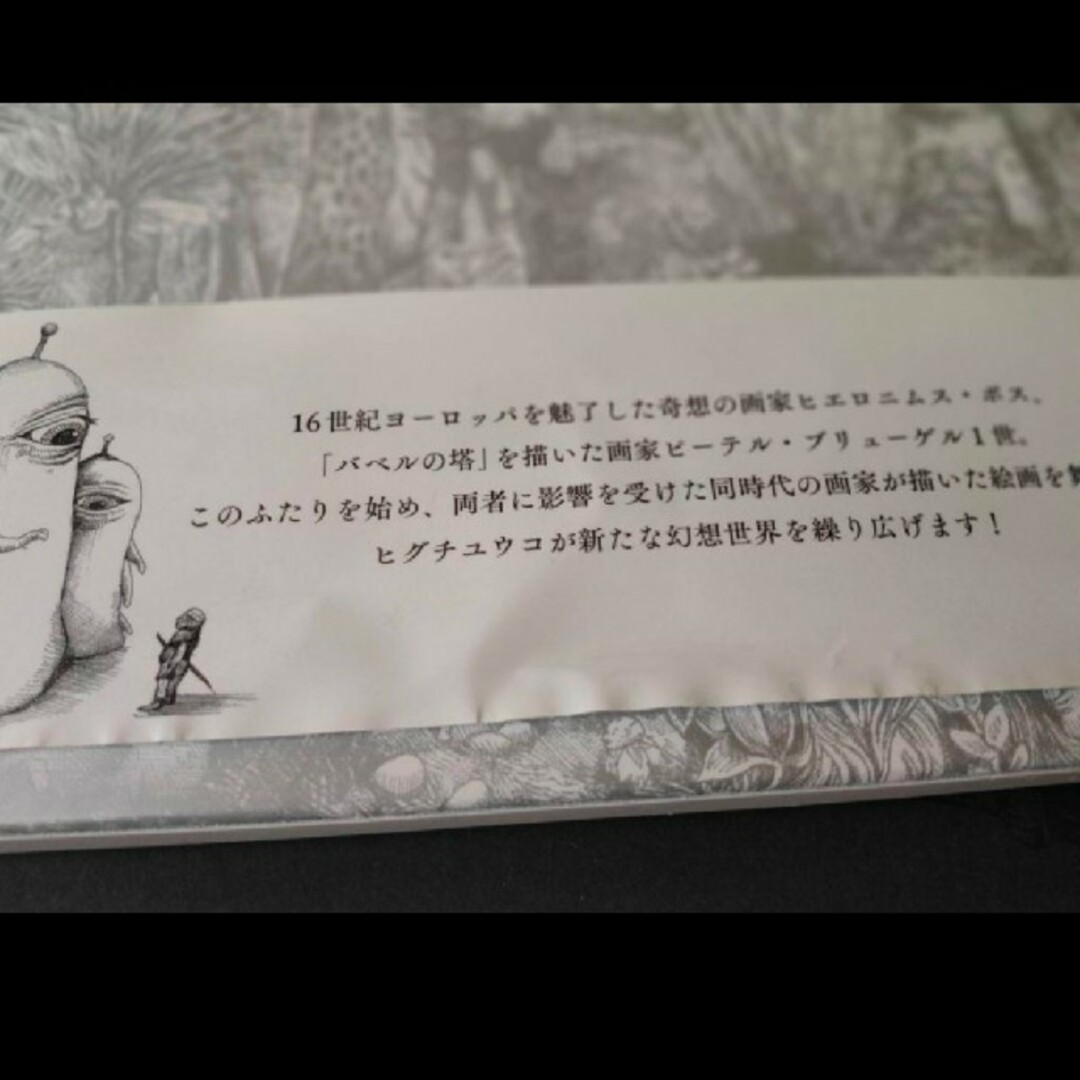 16世紀ヨーロッパを魅了した奇想の画家ヒエロニムス・ボス。
「バベルの塔」を描いた画家ピーテル・ブリューゲル1世。
このふたりを始め、両者に影響を受けた同時代の画家が描いた絵画を
ヒグチユウコが新たな幻想世界を繰り広げます！